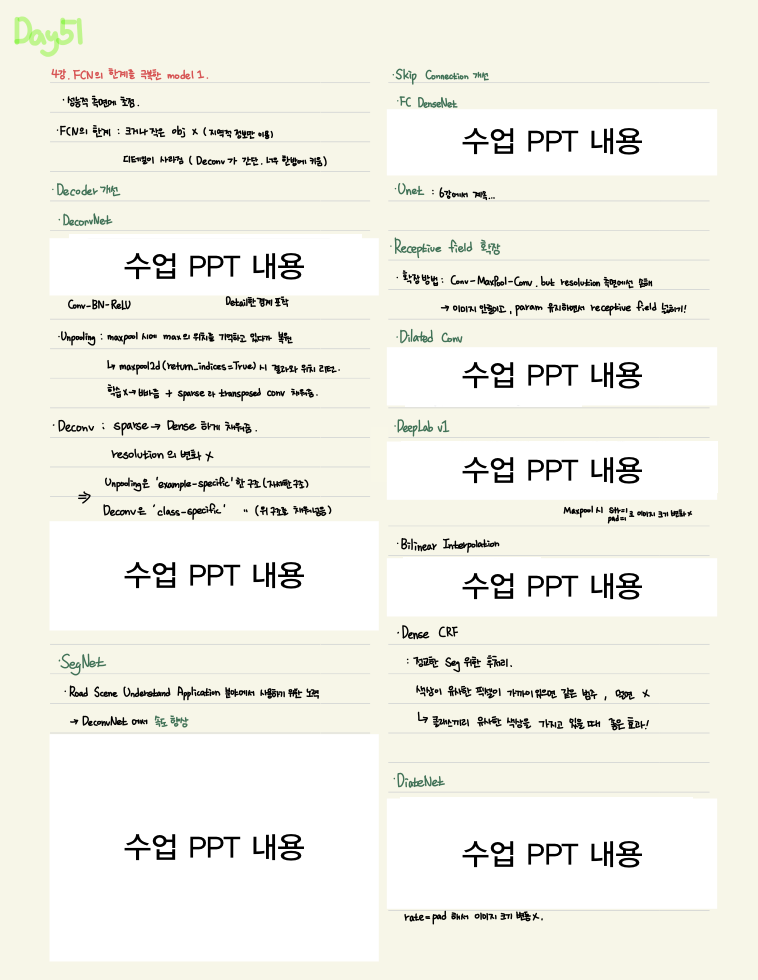 Day51
4강. FCN의 한계를 극복한 model 1.
· 성능적 측면에 초점.
· FCN의 한계 : 크거나 작은 obj X (지역적 정보만 이용)
디테일이 사라짐 (Deconv가 간단. 너무 한방에 키움)
· Decoder 개선
· DeconvNet
수업 PPT 내용
Conv-BN-ReLU
Detail한 경계 포착
· Unpooling : maxpool 시에 max의 위치를 기억하고 있다가 복원
↳ maxpool2d(return_indices=True) 시 결과와 위치 리턴.
학습X → 빠름 + sparse라 transposed conv 채워줌.
· Deconv : sparse → Dense 하게 채워줌.
resolution의 변화 X
Unpooling은 'example-specific'한 구조 (자세한 구조)
⇒
Deconv은 'class-specific' " (위 구조를 채워넣음)
수업 PPT 내용
· SegNet
· Road Scene Understand Application 분야에서 사용하기 위한 노력
→ DeconvNet 에서 속도 향상
수업 PPT 내용
· Skip Connection 개선
· FC DenseNet
수업 PPT 내용
· Unet : 6강에서 계속...
· Receptive field 확장
· 확장방법 : Conv-MaxPool-Conv. but resolution 측면에선 손해
→ 이미지 안줄이고, param 유지하면서 receptive field 넓히기!
· Dilated Conv
수업 PPT 내용
· DeepLab v1
수업 PPT 내용
Maxpool 시 str=1 pad=1 로 이미지 크기 변화 X
· Bilinear Interpolation
수업 PPT 내용
· Dense CRF
: 정교한 Seg 위한 후처리.
색상이 유사한 픽셀이 가까이있으면 같은 범주, 멀면 X
↳ 클래스끼리 유사한 색상을 가지고 있을 때 좋은 효과!
· DilatedNet
수업 PPT 내용
rate=pad 해서 이미지 크기 변동 X.